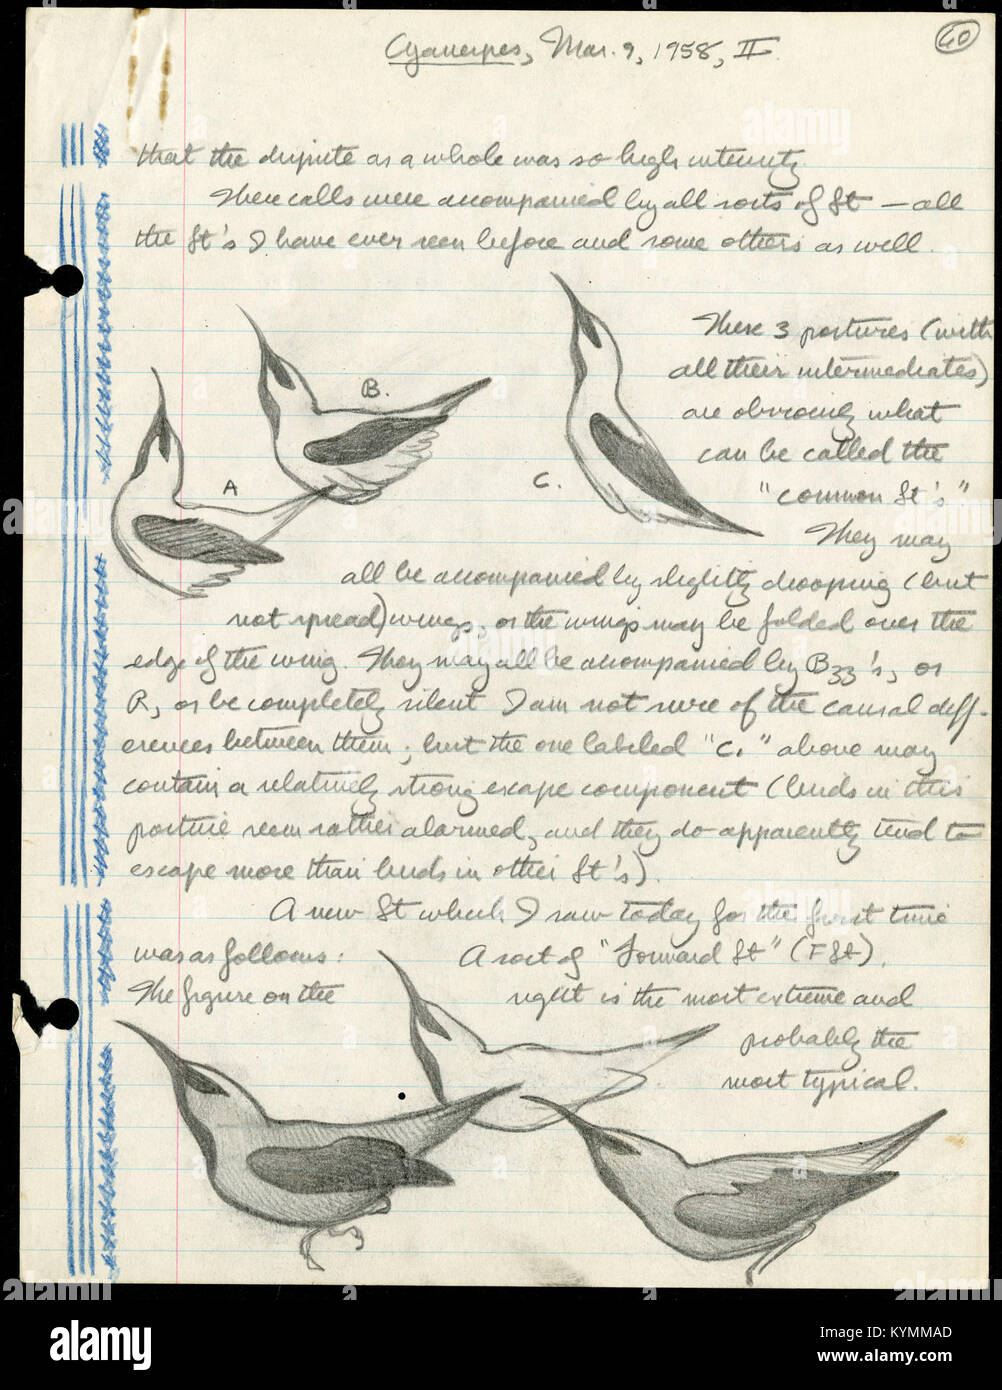 60
Cyanerpes, Mar. 9, 1958, II.
that the dispute as a whole was so high intensity.
These calls were accompanied by all sorts of St — all
the St's I have ever seen before and some others as well.
These 3 postures (with
all their intermediates)
are obviously what
can be called the
"common St's"
They may
A
B.
C.
all be accompanied by slightly drooping (but
not spread) wings, or the wings may be folded over the
edge of the wing. They may all be accompanied by B33's, or
R, or be completely silent. I am not sure of the causal diff-
erences between them; but the one labeled "C." above may
contain a relatively strong escape component (birds in this
posture seem rather alarmed, and they do apparently tend to
escape more than birds in other St's).
A new St which I saw today for the first time
was as follows: A sort of "Forward St" (F St).
The figure on the right is the most extreme and
probably the
most typical.
alamy
KYMMAD
www.alamy.com